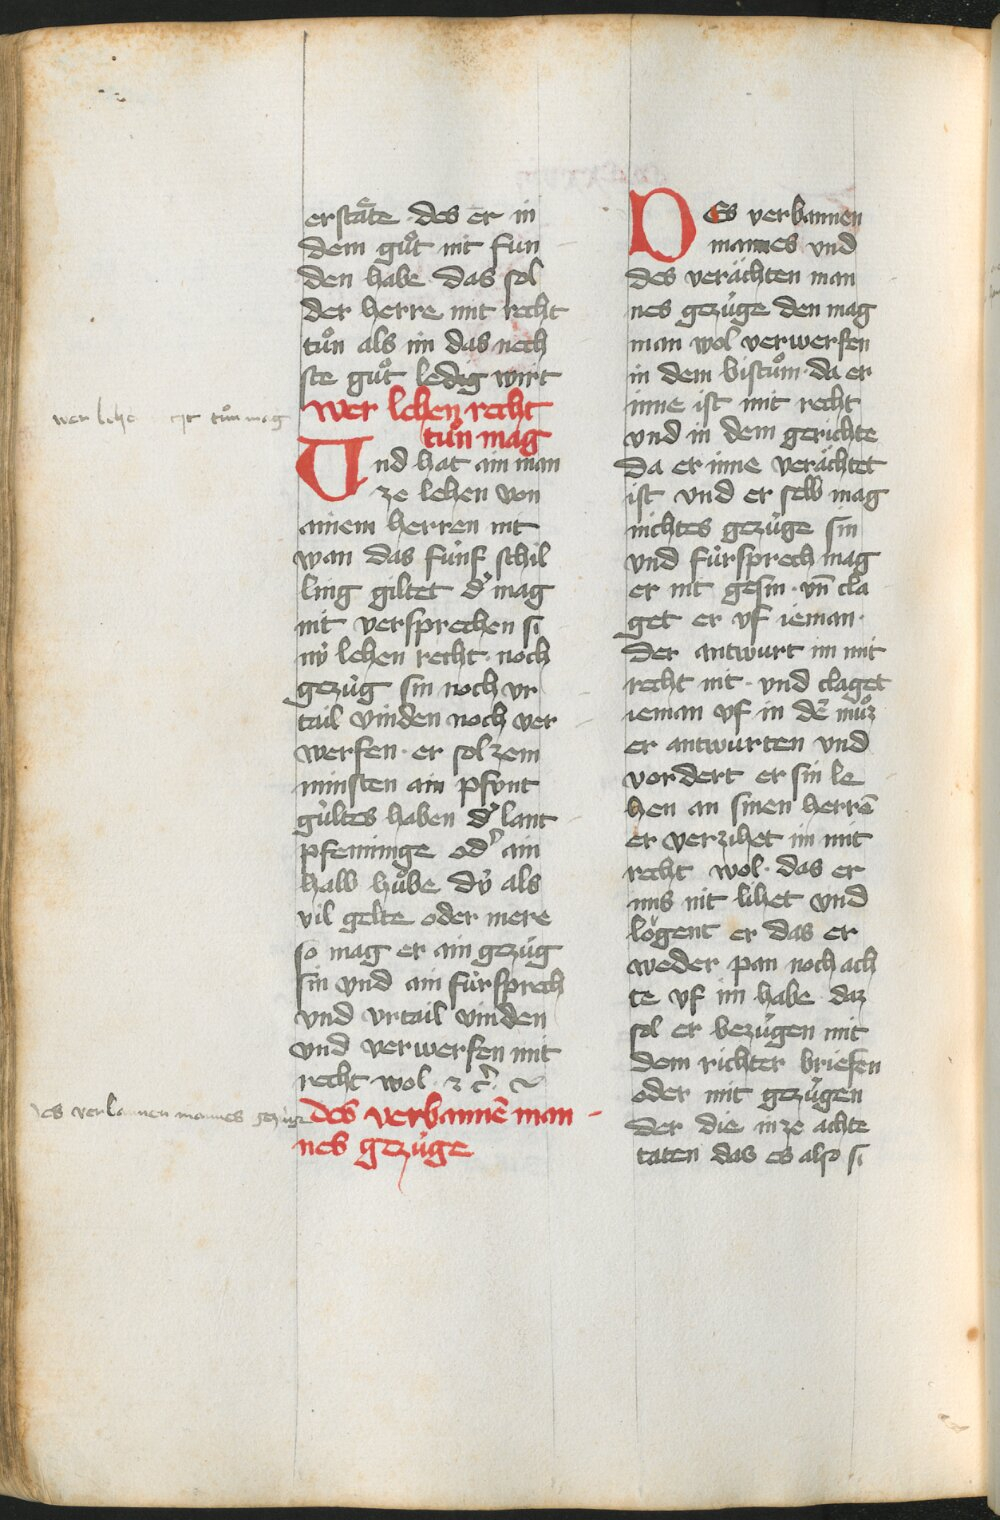 erstaͤte des er in
dem guͦt nit fun
den habe das sol
der herre mit recht
tuͦn als im das nech
ste guͦt ledig wirt
wer lehen recht
tuͦn mag
Vnd hat ain man
ze lehen von
ainem herren nit
wan das fuͤnf schil
ling giltet d' mag
nit versprechen si
nÿ lehen recht · noch
gezuͤg sin noch vr
tail vinden noch ver
werfen · er sol zem
minsten ain pfunt
guͤltes haben d' lant
pfenninge od' ain
halb huͦbe dÿ als
vil gelte oder mere
so mag er ain gezuͤg
sin vnd ain fuͤrsprech
vnd vrtail vinden
vnd verwerfen mit
recht wol · ⁊ c̃ ·
des verbannē man
nes gezuͤge
wer lehe tuͦn mag
des verbannen mannes gezuͤge
Des verbannen
mannes vnd
des veraͤchten man
nes gezuͤge den mag
man wol verwerfen
in dem bistuͦm · da er
inne ist mit recht
vnd in dem gerichte
da er inne veraͤchtet
ist vnd er selb mag
nichtes gezuͤge sin
vnd fuͤrsprech mag
er nit gesin · vn̄ cla
get er vf ieman ·
der antwurt im mit
recht nit · vnd claget
ieman vf in dē muͦz
er antwurten vnd
vordert er sin le
hen an sinen herrē
er verzihet im mit
recht wol · das er
ims nit lihet vnd
loͤgent er das er
weder pan noch ach
te vf im habe daz
sol er bezuͤgen mit
dem richter briefen
oder mit gezuͤgen
der die in ze achte
taten das es also si